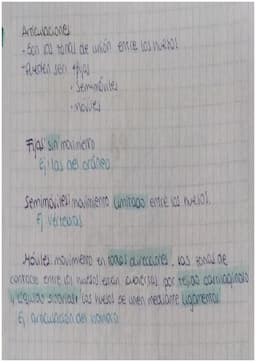 Articulaciones
- Son las zonas de unión entre los huesos.
- Pueden ser: • fijas
• semimóviles
• móviles
Fijas: sin movimiento
Ej: las del cráneo.
Semimóviles: movimiento limitado entre los huesos.
Ej: vértebras
Móviles: movimiento en todas direcciones. Las zonas de
contacto entre los huesos están cubiertas por tejido cartilaginoso
y líquido sinovial. Los huesos se unen mediante ligamentos.
Ej: articulación del hombro